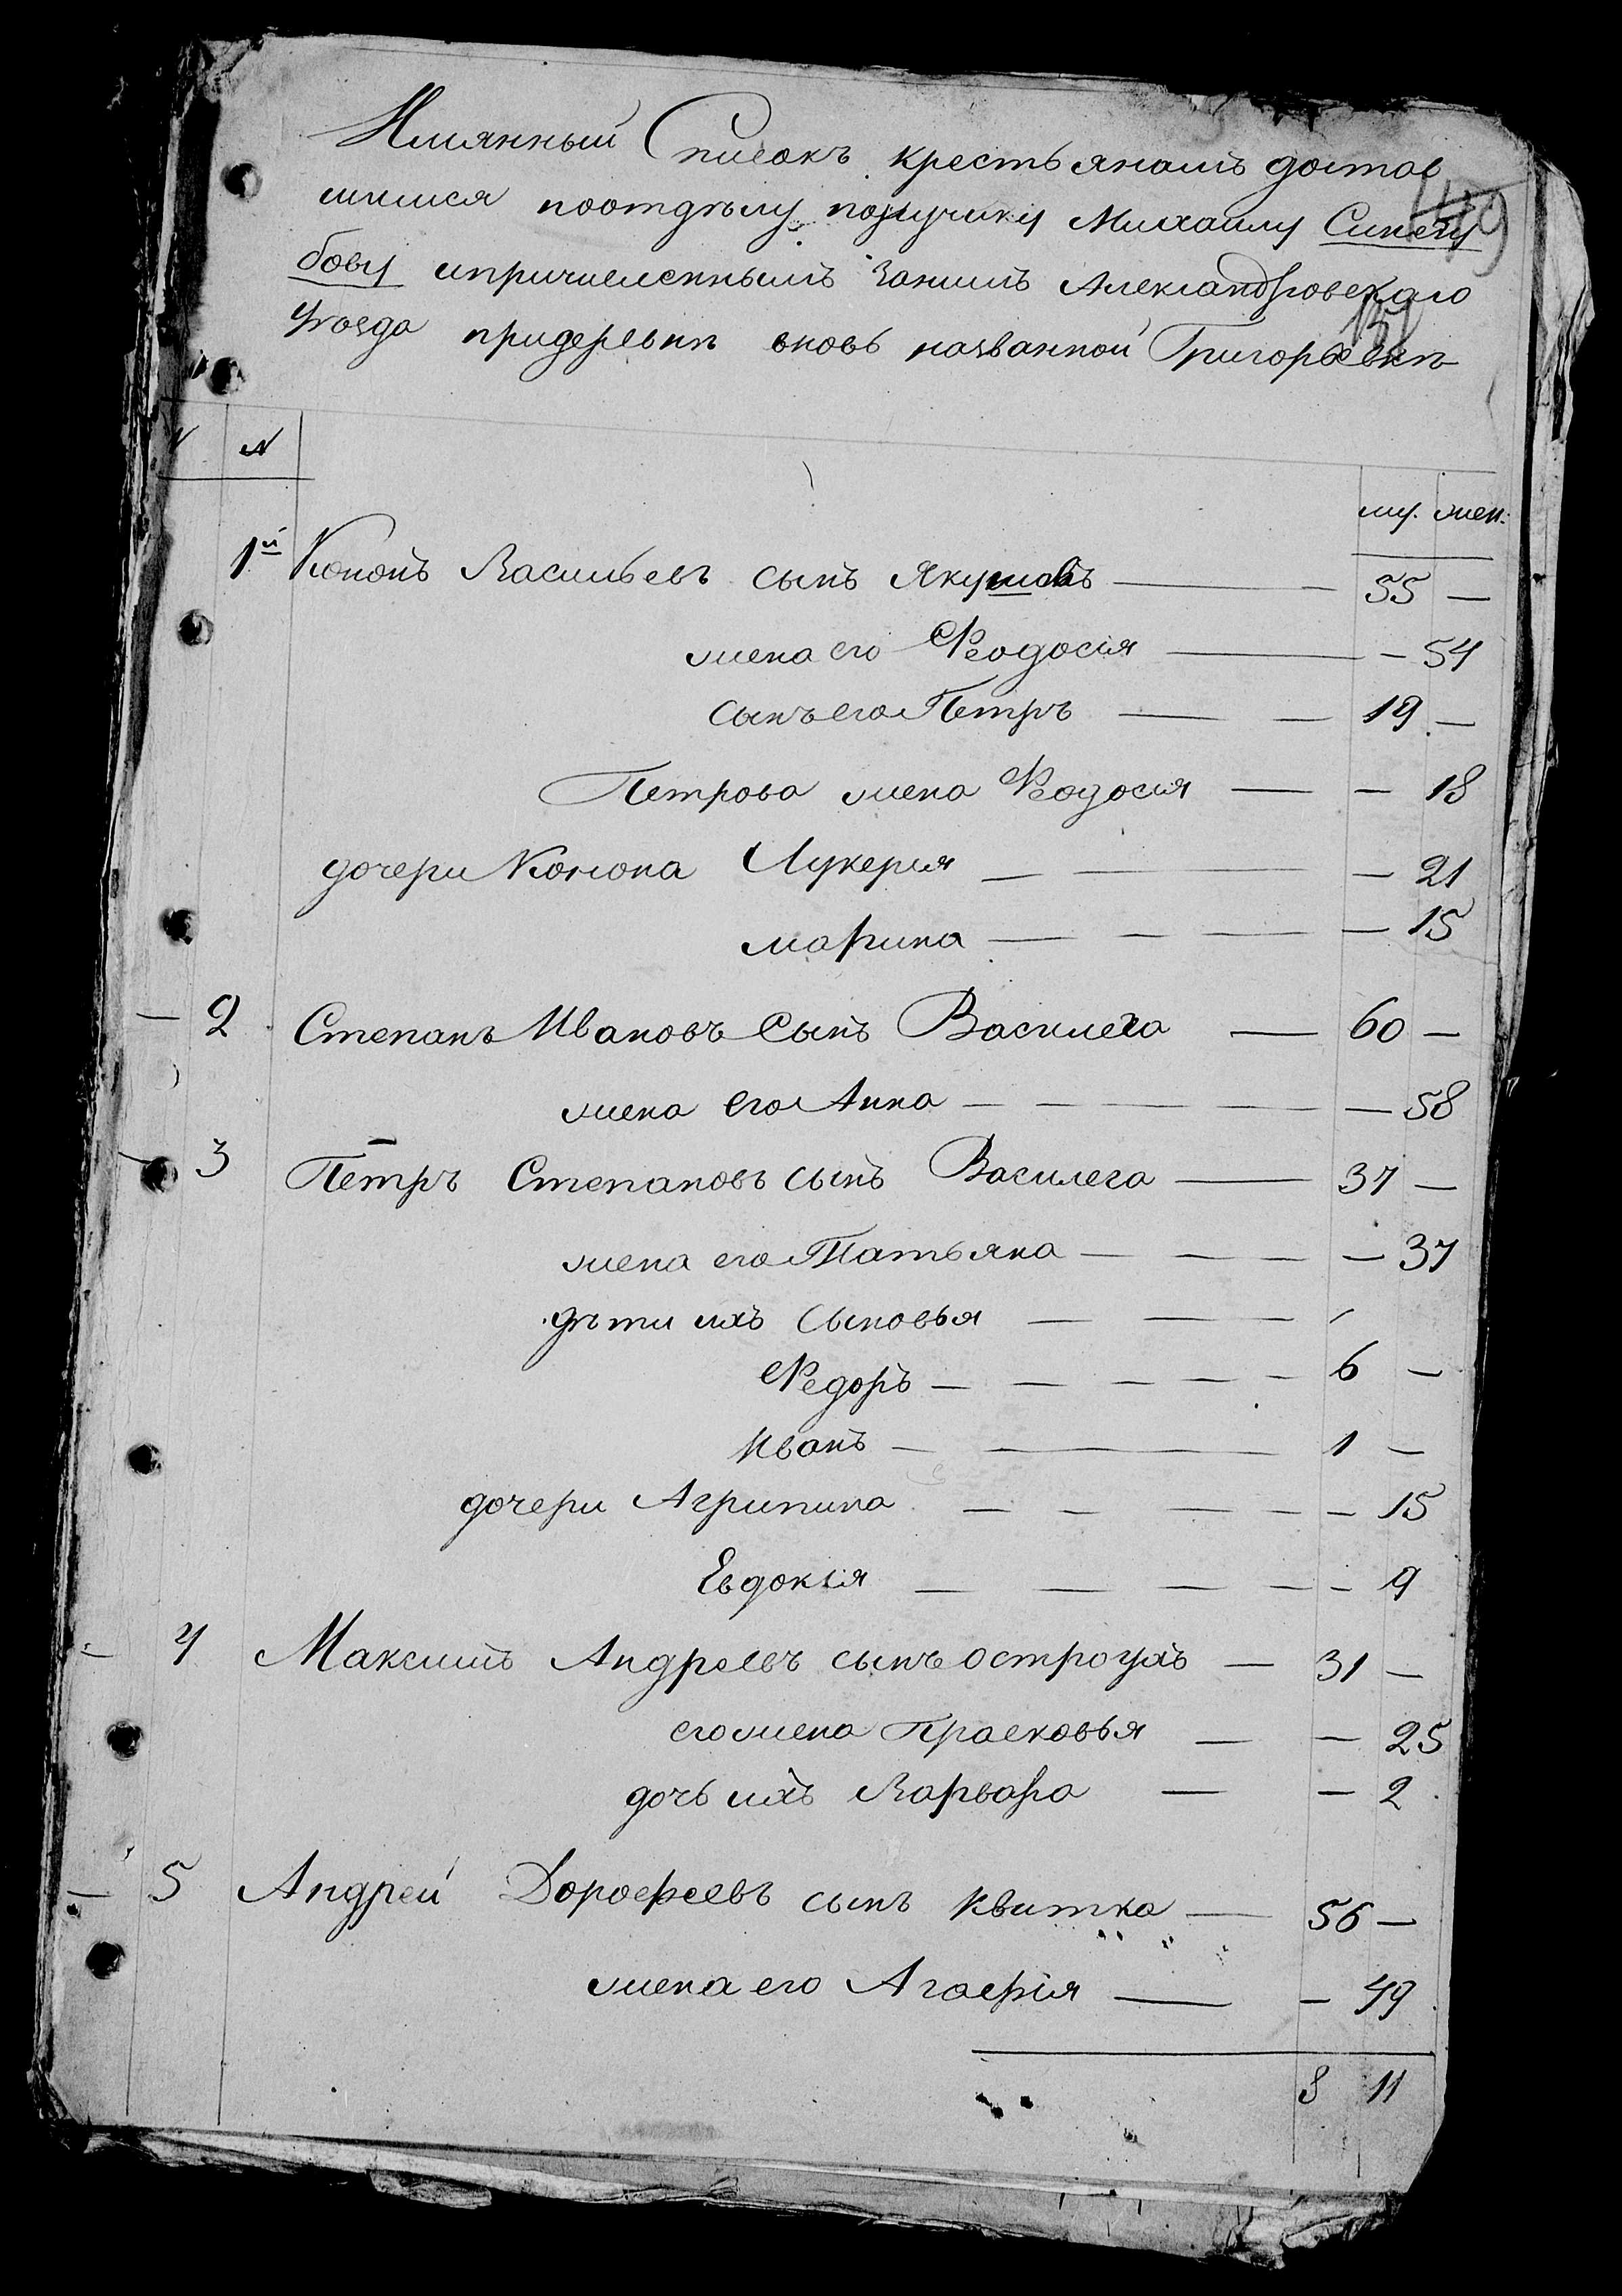 Имянный Списокъ крестьянамъ достав
шимся поотдѣлу порутчику Михаилу Синелу
бову ипричисленнымъ Занимъ Александровскаго
уѣзда придеревнѣ вновь названной Григорьевкѣ
149
151
N N
му. жен.
1й Кононъ Васильевъ сынъ Якушовъ — 55 —
жена его Феодосія — — 54
сынъ его Петръ — — 19 —
Петрова жена Феодосия — — 18
дочери Конона Лукерия — — — 21
марина — — — — 15
— 2 Степанъ Ивановъ Сынъ Василега — 60 —
жена его Анна — — — — — 58
— 3 Петръ Степановъ сынъ Василега — 37 —
жена его Татьяна — — — — 37
дѣти ихъ Сыновья — — —
Федоръ — — — — — 6 —
Иванъ — — 1 —
дочери Агрипина — — — — — 15
Евдокія — — — — — 9
— 4 Максимъ Андреевъ сынъ остроухъ — 31 —
его жена Прасковья — — 25
дочь ихъ Варвара — — 2
— 5 Андрей Дорофеевъ сынъ Квитка — 56 —
жена его Агафія — — 49
8 11